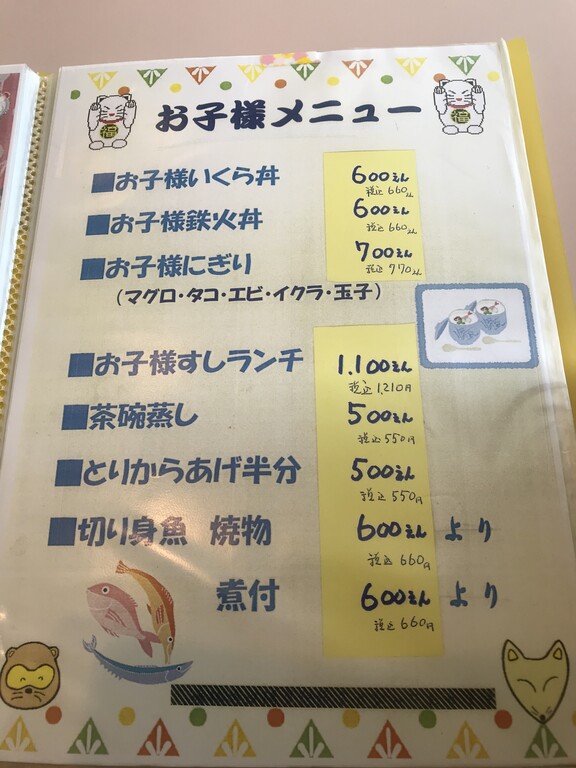 お子様メニュー
福
福
■お子様いくら丼 600えん
税込 660えん
■お子様鉄火丼 600えん
税込 660えん
■お子様にぎり 700えん
税込 770えん
(マグロ・タコ・エビ・イクラ・玉子)
■お子様すしランチ 1,100えん
税込 1,210円
■茶碗蒸し 500えん
税込 550円
■とりからあげ半分 500えん
税込 550円
■切り身魚 焼物 600えん より
税込 660円
煮付 600えん より
税込 660円